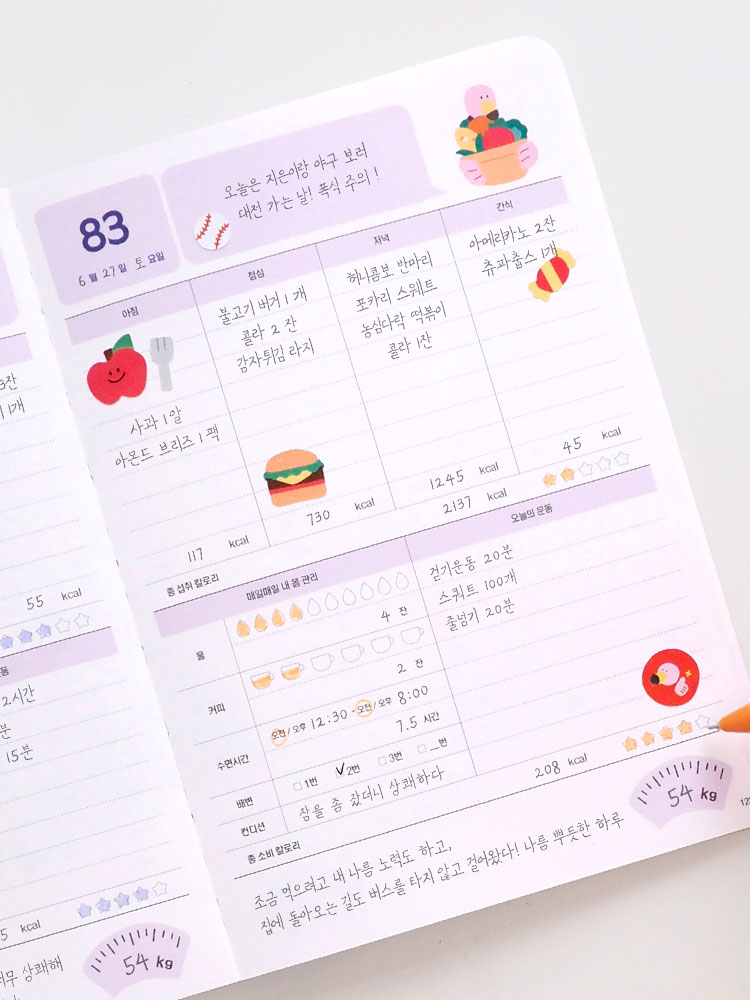 오늘은 지은이랑 야구 보러
대전 가는 날! 폭식 주의!
83
6월 27일 토요일
아침
점심
저녁
간식
사과 1알
아몬드 브리즈 1팩
불고기 버거 1개
콜라 2잔
감자튀김 라지
허니콤보 반마리
포카리 스웨트
농심다락 떡볶이
콜라 1잔
아메리카노 2잔
츄파춥스 1개
117 kcal
730 kcal
1245 kcal
45 kcal
총 섭취 칼로리
2137 kcal
매일매일 내 몸 관리
오늘의 운동
물
4 잔
커피
2 잔
수면시간
오전/오후 12:30 - 오전/오후 8:00
7.5 시간
배변
1번 2번 3번 _번
컨디션
잠을 좀 잤더니 상쾌하다
걷기운동 20분
스쿼트 100개
줄넘기 20분
총 소비 칼로리
208 kcal
54 kg
조금 먹으려고 내 나름 노력도 하고,
집에 돌아오는 길도 버스를 타지 않고 걸어왔다! 나름 뿌듯한 하루
3잔
1개
55 kcal
동
2시간
분
15분
5 kcal
54 kg
너무 상쾌해